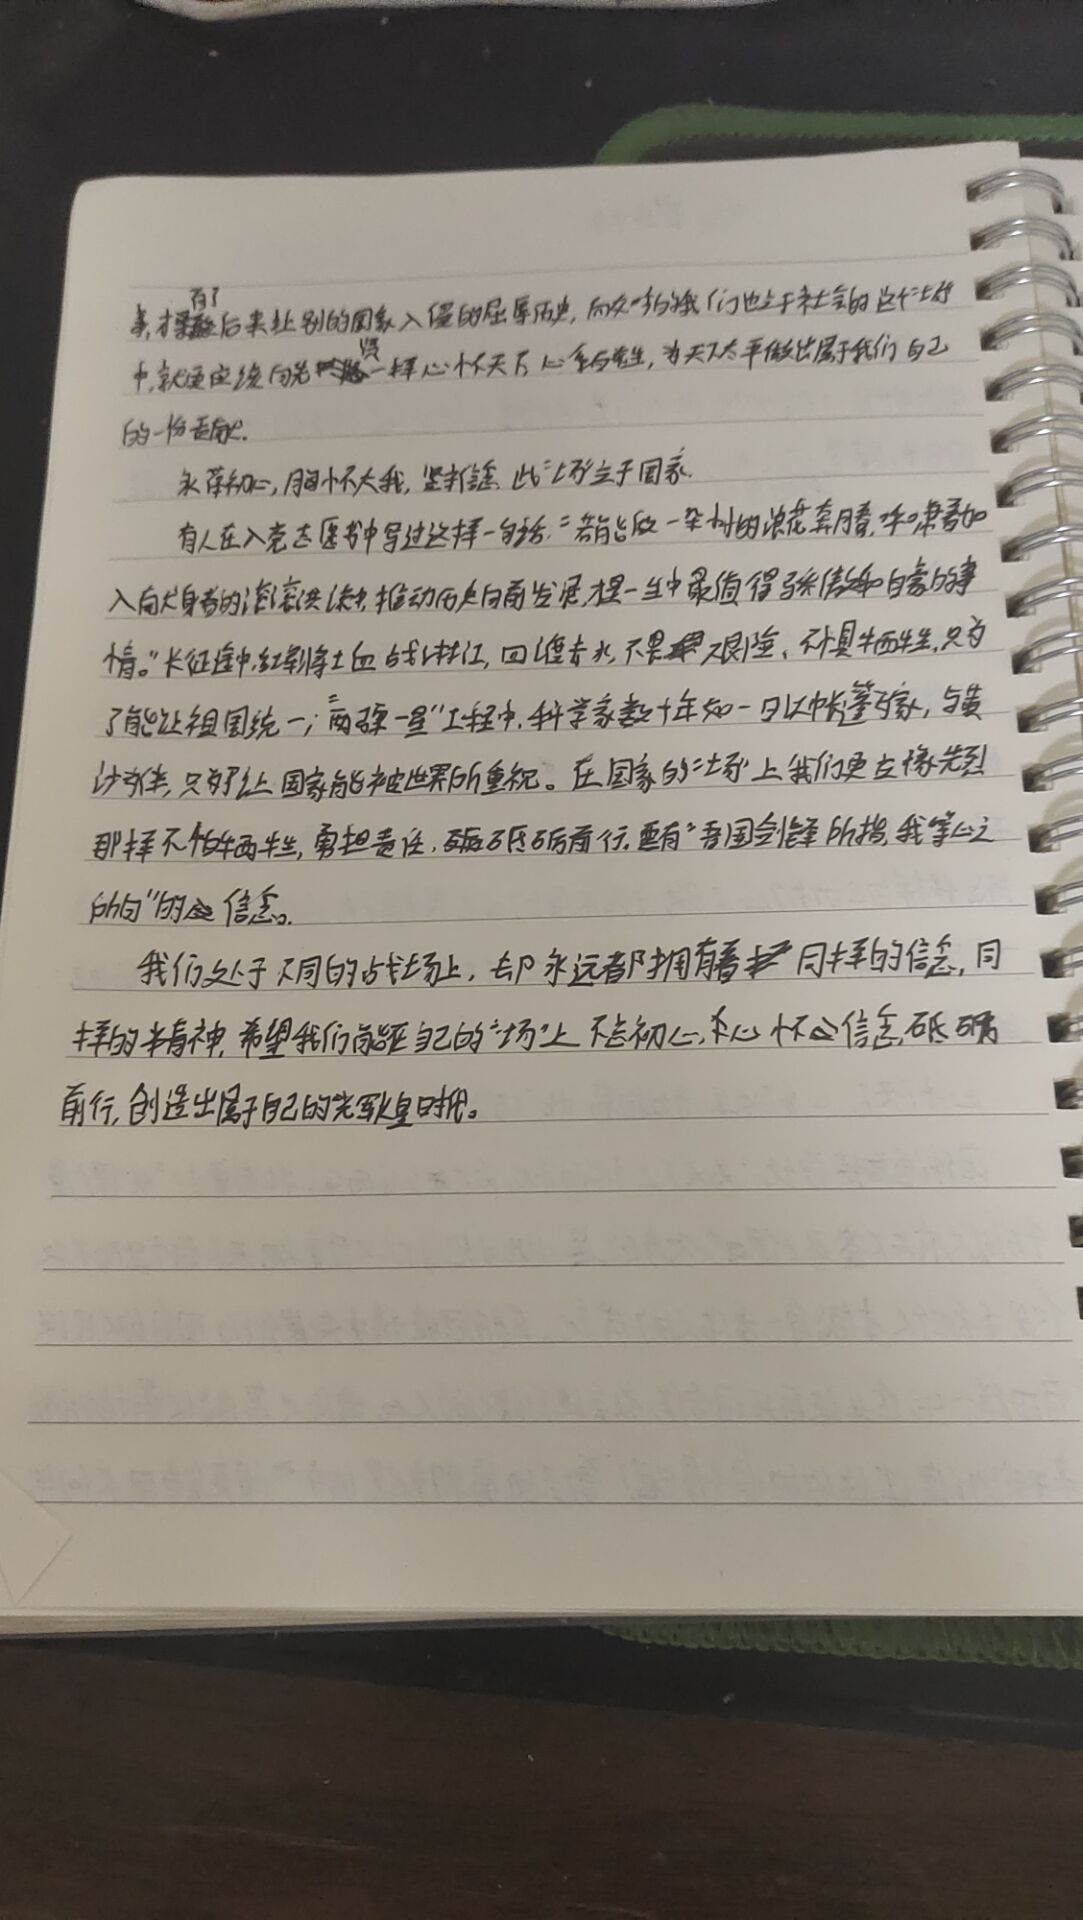 有了
后来让别的国家入侵的屈辱历史,而如今的我们也立于社会的这个“场”
贤
中,就更应该向先一样心怀天下心系苍生,为天下太平做出属于我们自己
的一份贡献.
永葆初心,胸怀大我,坚定信念,此“场”立于国家.
有人在入党志愿书中写过这样一句话:“若能做一朵小小的浪花奔腾,呼啸着加
入献身者的滚滚洪流中推动历史向前发展,才是一生中最值得骄傲和自豪的事
情。”长征途中,红军将士血战湘江,四渡赤水,不畏艰险、不惧牺牲,只为
了能让祖国统一;“两弹一星”工程中,科学家数十年如一日以帐篷为家,与黄
沙为伴,只为了让国家能被世界所重视。在国家的“场”上我们更应像先烈
那样不怕牺牲,勇担责任,砥砺前行,要有“吾国剑锋所指,我等心之
所向”的信念。
我们处于不同的战场上,却永远都拥有着同样的信念,同
样的精神,希望我们能在自己的“场”上不忘初心,心怀信念,砥砺
前行,创造出属于自己的光辉煌时代。